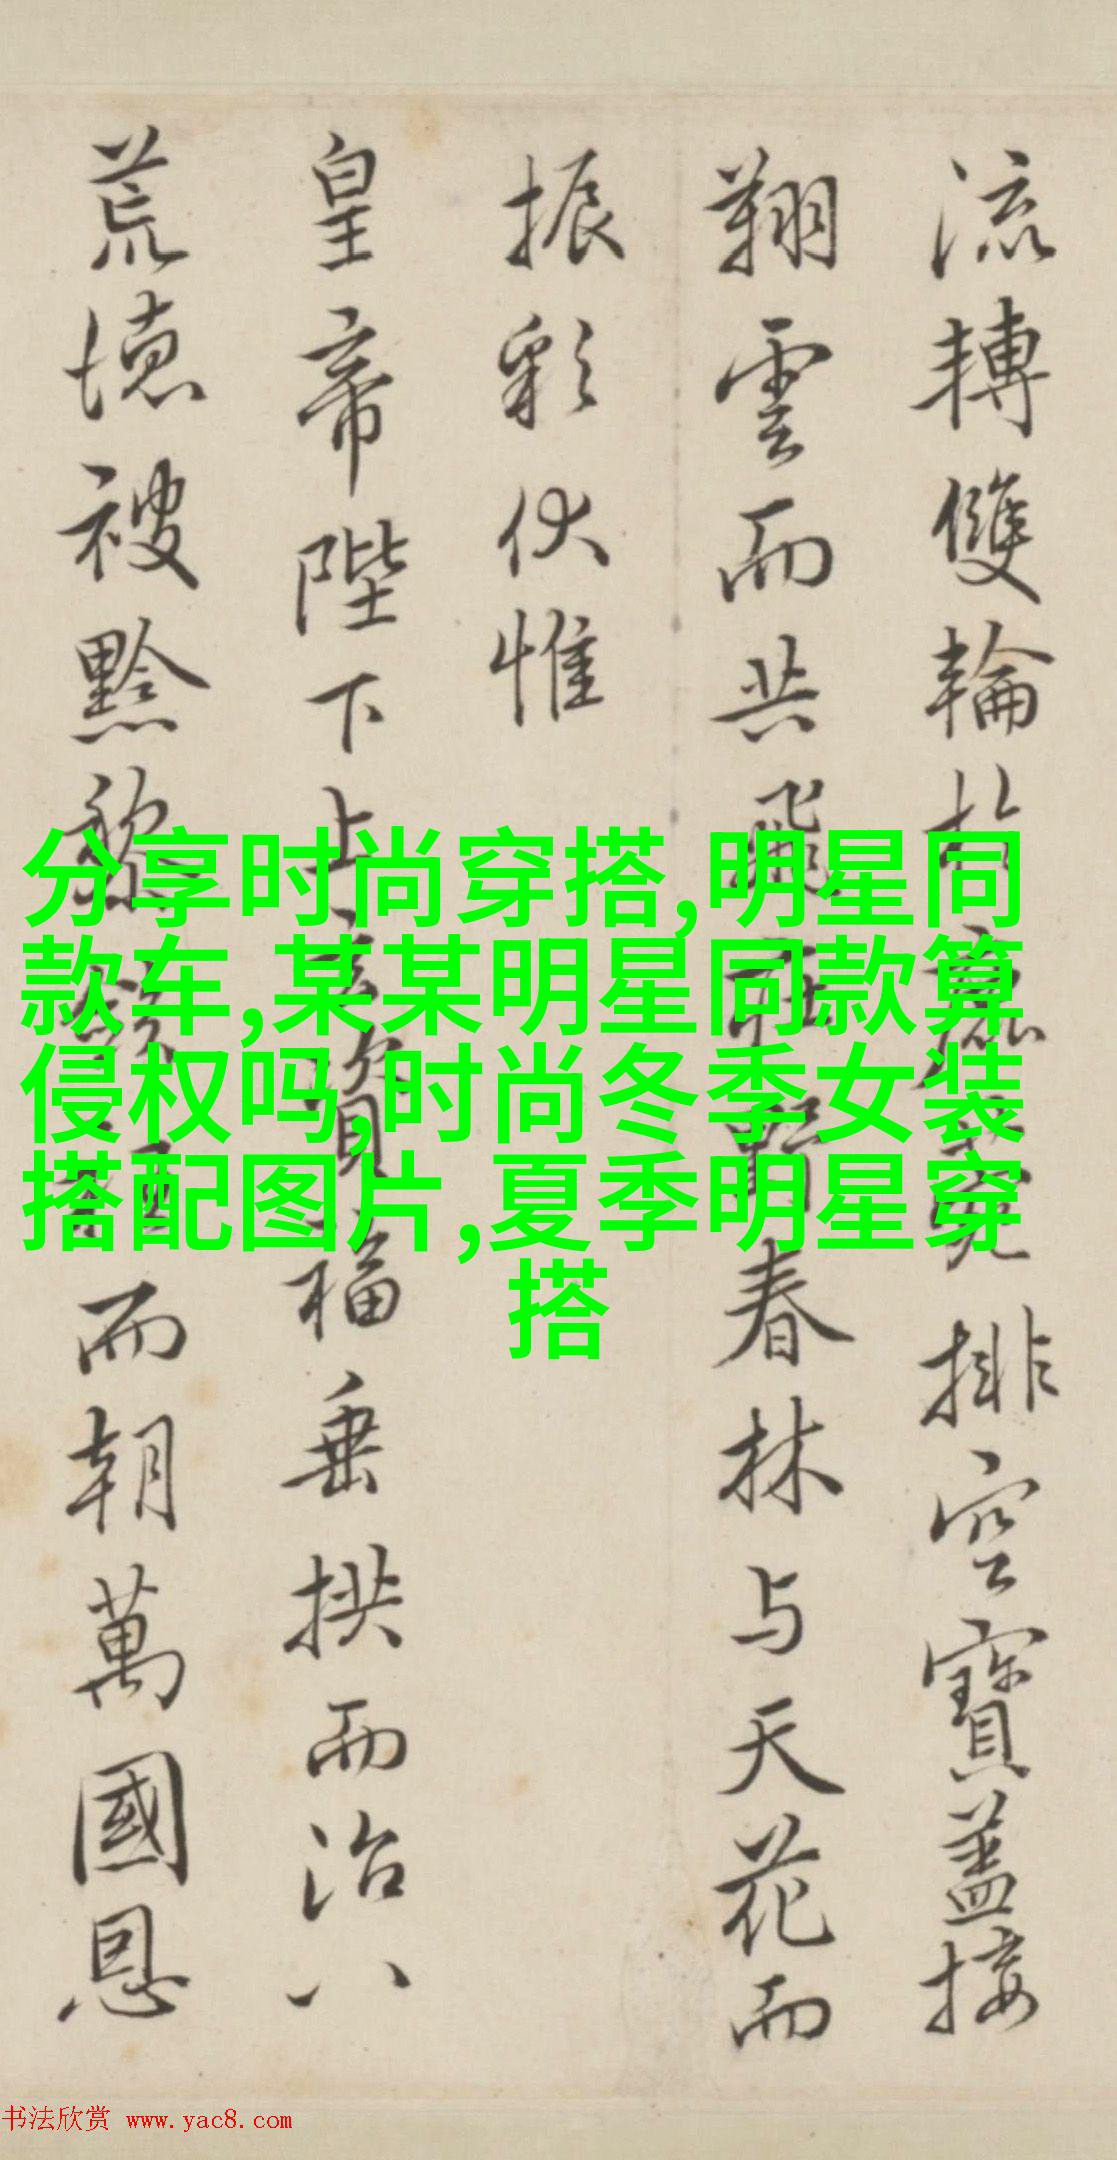 流轉雙輪於鹿苑排空寶蓋接
翔雲而共飛莊野春林与天花而
振彩伏惟
皇帝陛下上玄資福垂拱而治八
荒德被黔黎斂衽而朝萬國恩
分享时尚穿搭,明星同
款车,某某明星同款算
侵权吗,时尚冬季女装
搭配图片,夏季明星穿
搭
书法欣赏 www.yac8.com